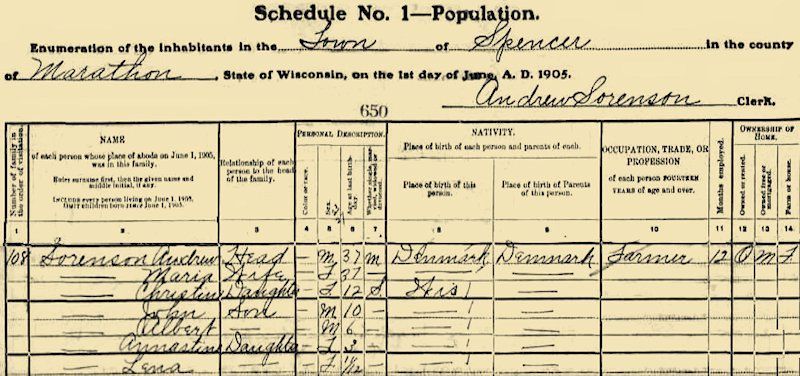 Schedule No. 1—Population.
Enumeration of the inhabitants in the Town of Spencer in the county
of Marathon, State of Wisconsin, on the 1st day of June, A. D. 1905.
Andrew Sorenson Clerk.
650
Number of family in the order of visitation.
NAME
of each person whose place of abode on June 1, 1905, was in this family.
Enter surname first, then the given name and middle initial, if any.
INCLUDE every person living on June 1, 1905.
OMIT children born since June 1, 1905.
Relationship of each person to the head of the family.
PERSONAL DESCRIPTION.
Color or race.
Sex.
Age at last birthday.
Whether single, married, widowed or divorced.
NATIVITY.
Place of birth of each person and parents of each.
Place of birth of this person.
Place of birth of Parents of this person.
OCCUPATION, TRADE, OR PROFESSION
of each person FOURTEEN YEARS of age and over.
Months employed.
OWNERSHIP OF HOME.
Owned or rented.
Owned free or mortgaged.
Farm or house.
1 2 3 4 5 6 7 8 9 10 11 12 13 14
108 Sorenson Andrew Head — M 37 M Denmark Denmark Farmer 12 O M F
— Maria Wife — F 37 — — —
— Christine Daughter — F 12 S Wis —
— John Son — M 10 — — —
— Albert — — M 6 — — —
— Daughter — F 3 — — —
— Lena — — F 1/12 — — —